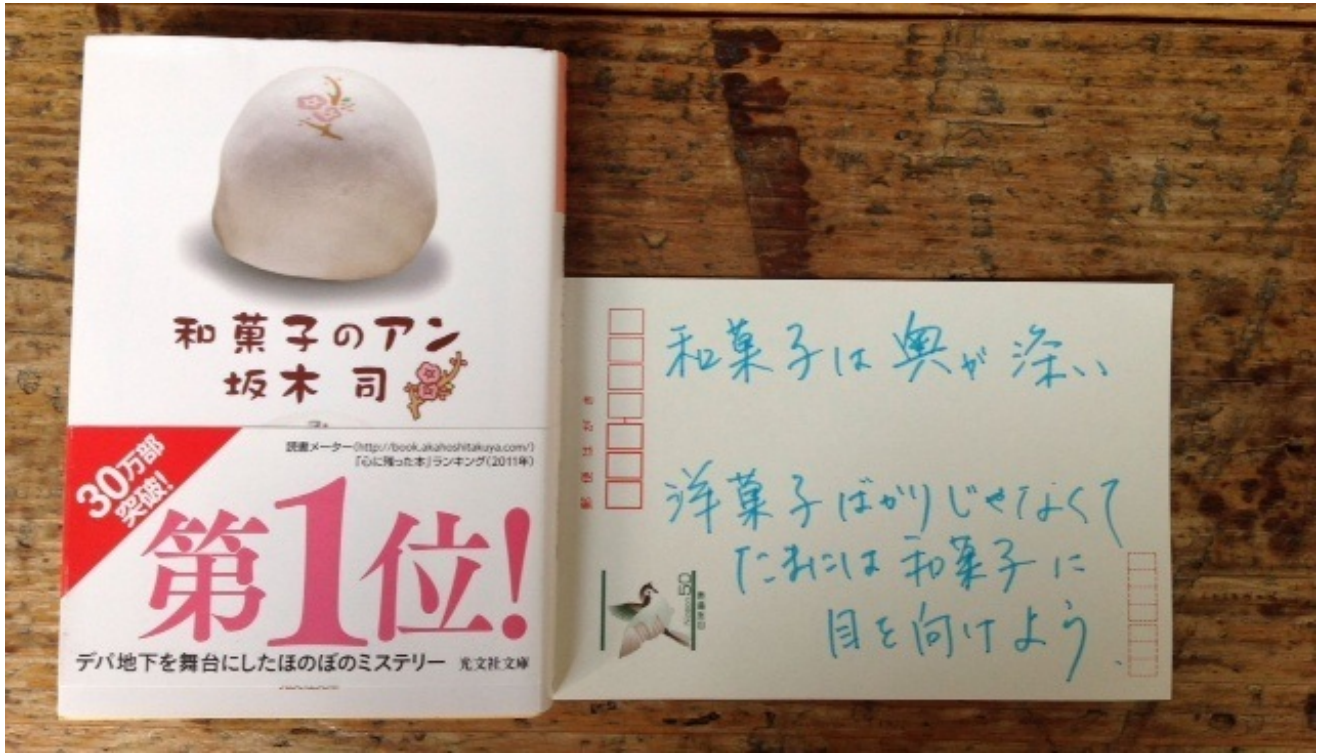 和菓子のアン
坂木 司
30万部
突破!
読書メーター(http://book.akahoshitakuya.com/)
「心に残った本」ランキング(2011年)
第1位!
デパ地下を舞台にしたほのぼのミステリー 光文社文庫
和菓子は奥が深い
洋菓子ばかりじゃなくて
たまには和菓子に
目を向けよう
郵便はがき
50